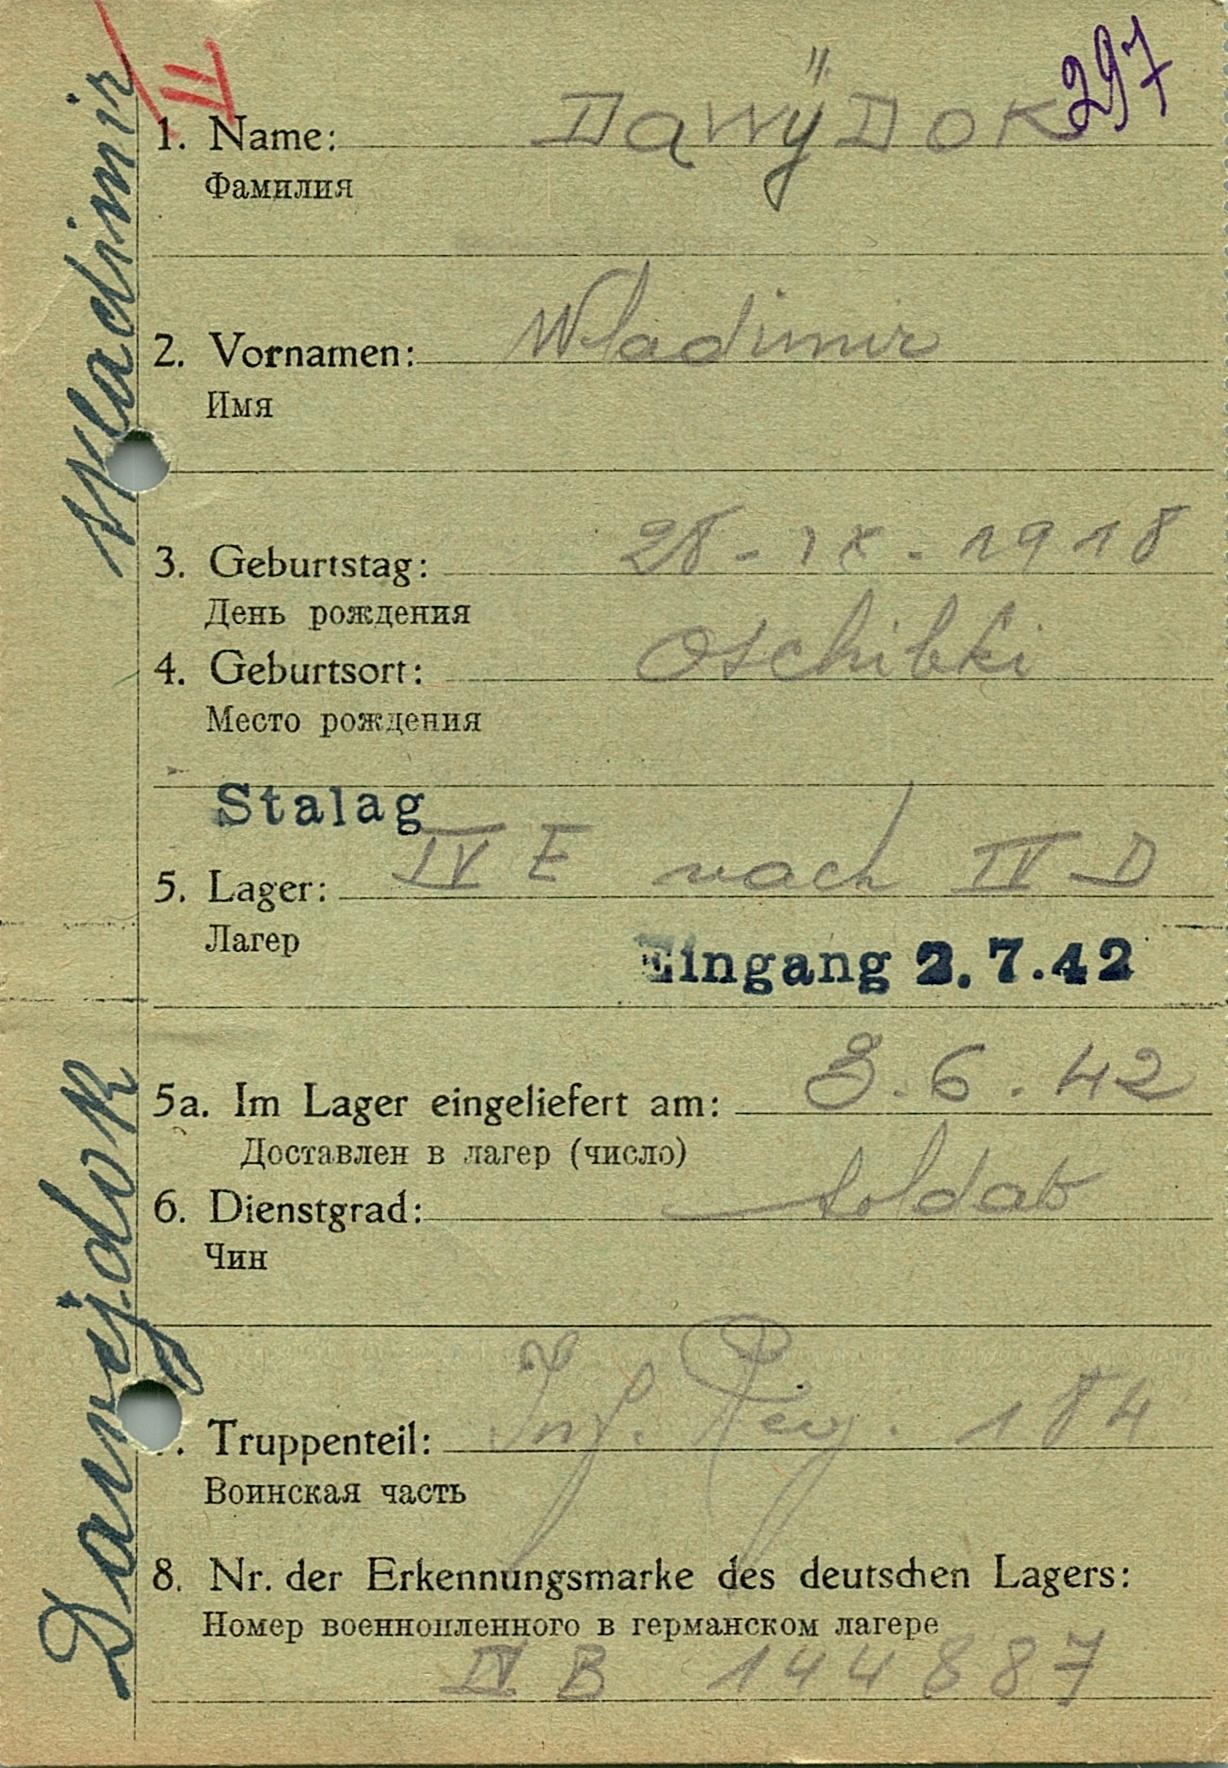 II
297
1. Name: DaWÿDOK
Фамилия
2. Vornamen: Wladimir
Имя
3. Geburtstag: 28 - IX - 1918
День рождения
4. Geburtsort: Oschibki
Место рождения
Stalag
5. Lager: IV E nach IV D
Лагер
Eingang 2.7.42
5a. Im Lager eingeliefert am: 3.6.42
Доставлен в лагер (число)
6. Dienstgrad: Soldat
Чин
7. Truppenteil: Inf. Reg. 184
Воинская часть
8. Nr. der Erkennungsmarke des deutschen Lagers:
Номер военнопленного в германском лагере
IV B 144887
Dawÿdok Wladimir